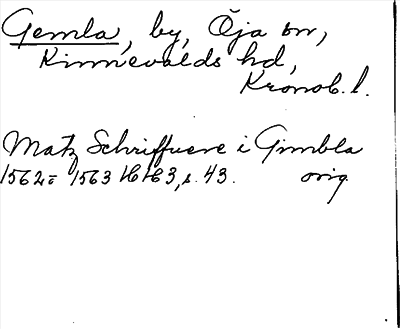 Gemla, by, Öja sn,
Kinnevalds hd,
Kronob. l.
Matz Schriffuere i Gimbla
1562- 1563 HH3, s. 43. orig.